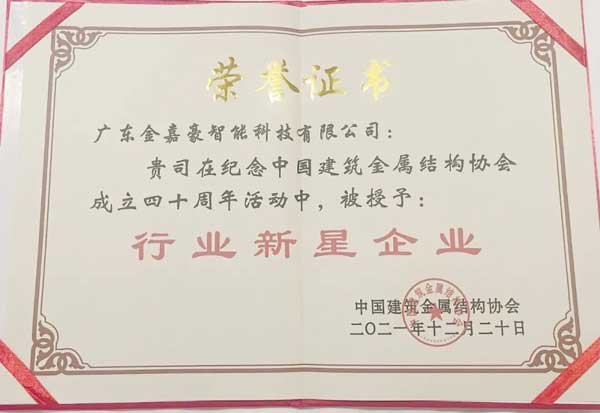 荣誉证书
广东金嘉豪智能科技有限公司：
贵司在纪念中国建筑金属结构协会
成立四十周年活动中，被授予：
行业新星企业
中国建筑金属结构协会
二〇二一年十二月二十日